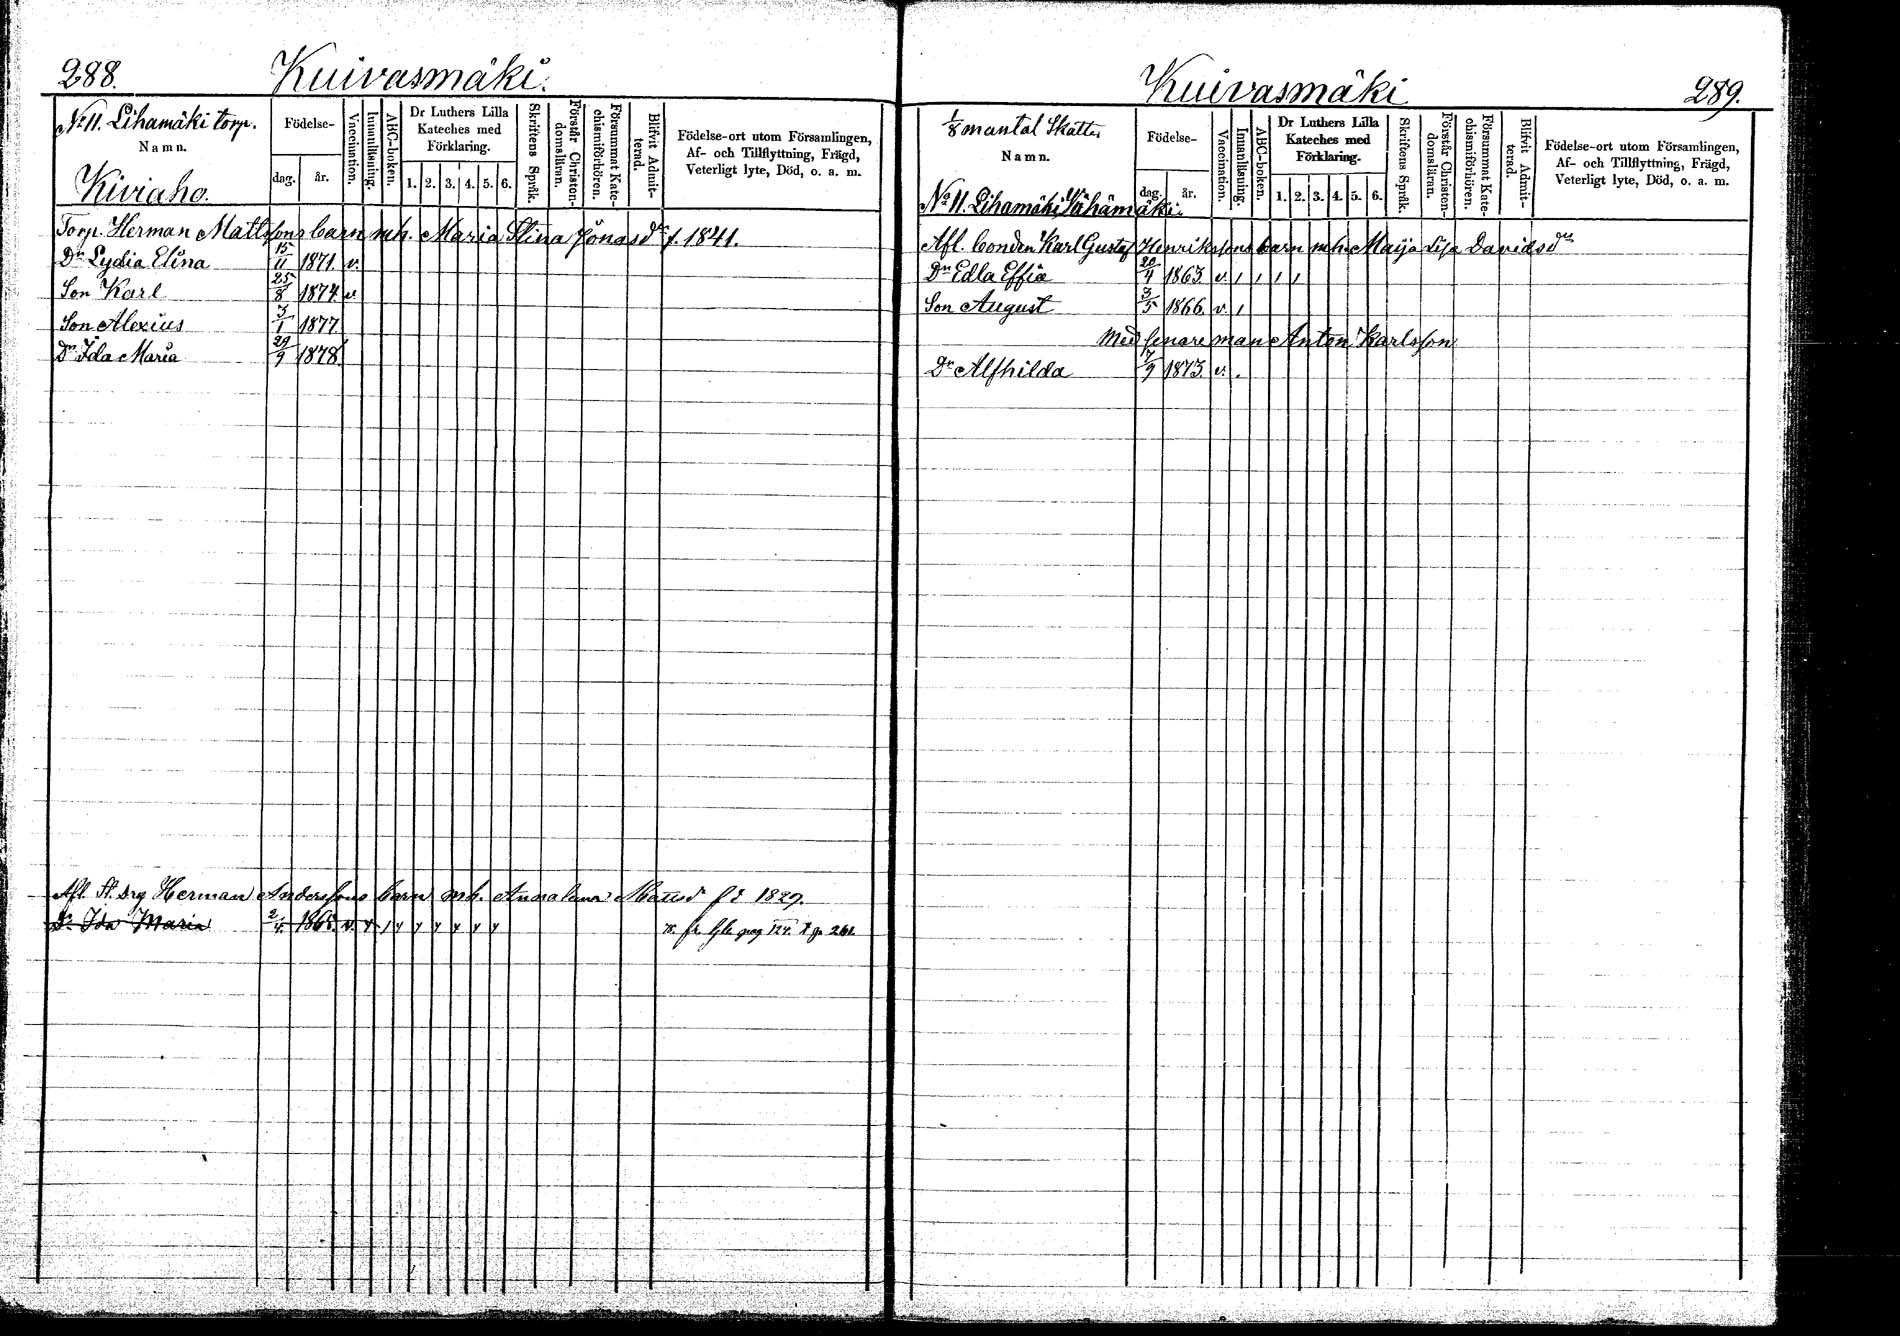 288. Kuivasmäki.
No 11. Lihamäki torp.
Namn.
Kiviaho.
Födelse-
dag. år.
Vaccination.
Innanläsning.
ABC-boken.
Dr Luthers Lilla
Kateches med
Förklaring.
1. 2. 3. 4. 5. 6.
Skriftens Språk.
Förstår Christen-
domsläran.
Försummat Kate-
chismiförhören.
Blifvit Admit-
terad.
Födelse-ort utom Församlingen,
Af- och Tillflyttning, Frägd,
Veterligt lyte, Död, o. a. m.
Torp. Herman Mattssons barn mh. Maria Stina Jonasdr f. 1841.
Dr Lydia Elina 15/11 1871 v.
Son Karl 25/8 1874 v.
Son Alexius 3/1 1877
Dr Ida Maria 29/9 1878
Afl. St. Drg Herman Anderssons barn mh. Annalena Mattsdr fd 1829.
Dr Ida Maria 2/4 1865. v.
fr. pag 124. 261.
Kuivasmäki 289.
1/8 mantal Skatte
Namn.
No 11. Lihamäki Vähämäki.
Födelse-
dag. år.
Vaccination.
Innanläsning.
ABC-boken.
Dr Luthers Lilla
Kateches med
Förklaring.
1. 2. 3. 4. 5. 6.
Skriftens Språk.
Förstår Christen-
domsläran.
Försummat Kate-
chismiförhören.
Blifvit Admit-
terad.
Födelse-ort utom Församlingen,
Af- och Tillflyttning, Frägd,
Veterligt lyte, Död, o. a. m.
Afl. bonden Karl Gustaf Henrikssons barn mh. Maija Lisa Davidsdr
Dr Edla Effia 20/4 1863. v.
Son August 3/5 1866. v.
Med senare man Anton Karlsson
Dr Alfhilda 17/9 1873. v.